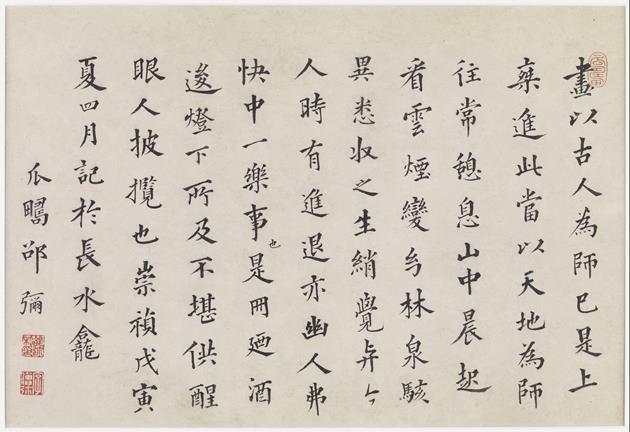 畫以古人為師已是上
乘進此當以天地為師
往常憩息山中晨起
看雲煙變与林泉駭
異悉收之生綃覺與今
人時有進退亦幽人弗
快中一樂事也是冊廼酒
逡燈下所及不堪供醒
眼人披攬也崇禎戊寅
夏四月記於長水龕
瓜疇邵彌